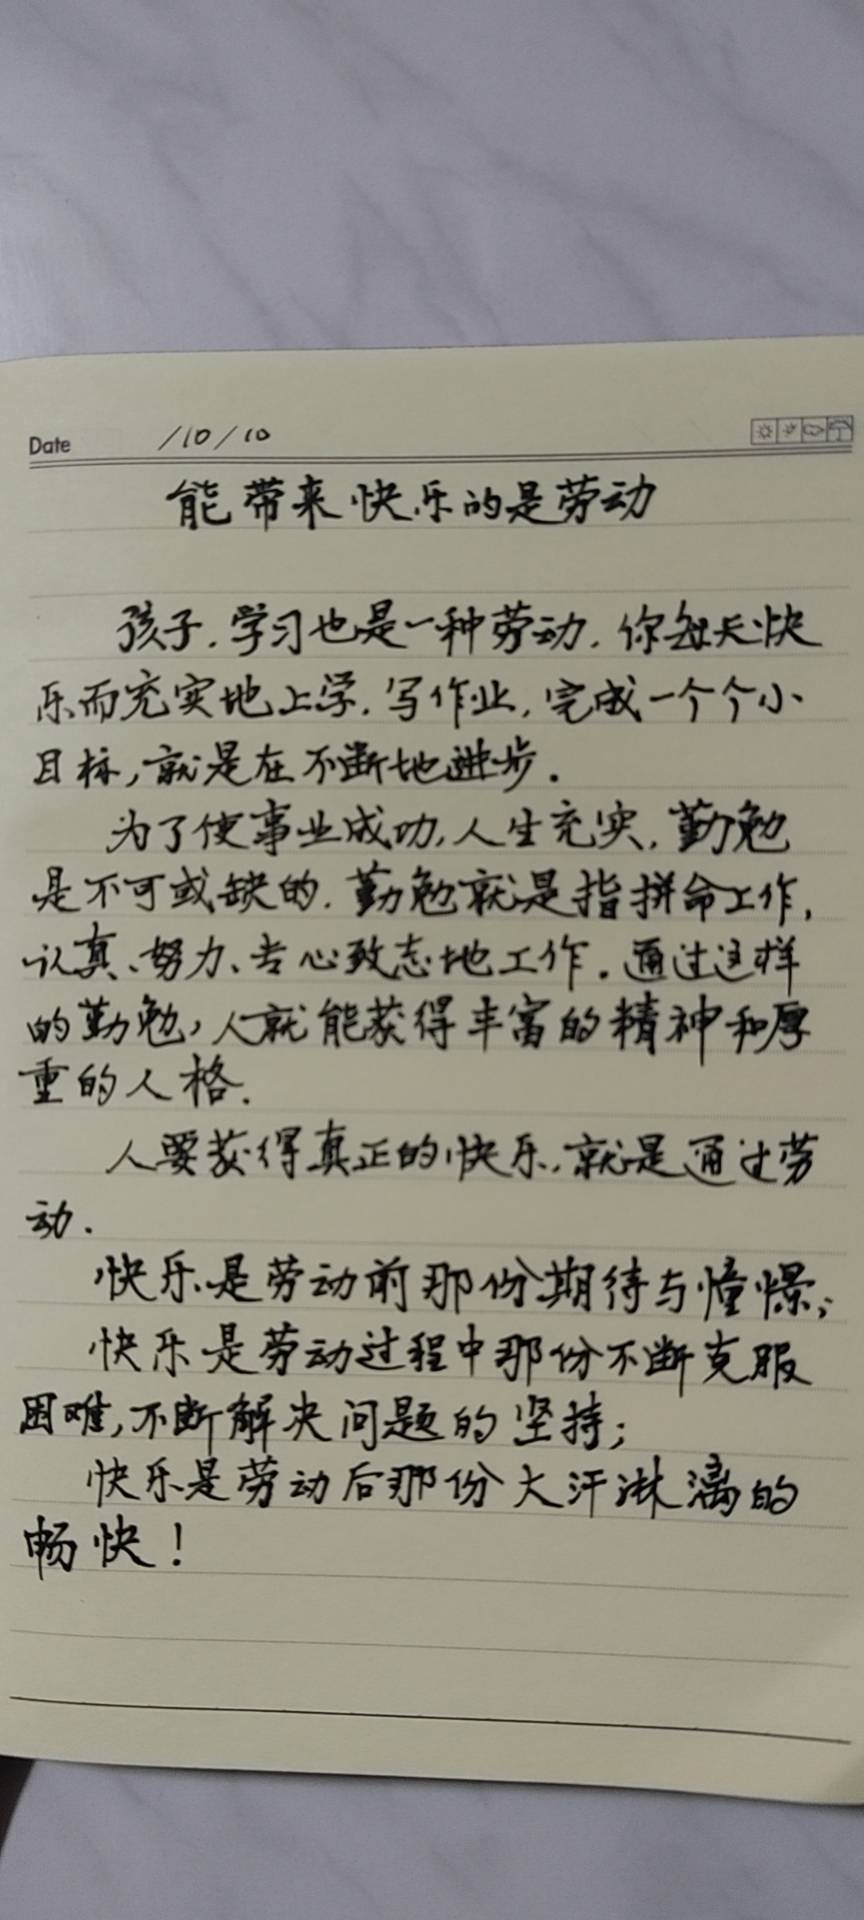 Date /10/10
能带来快乐的是劳动
孩子.学习也是一种劳动.你每天快
乐而充实地上学.写作业,完成一个个小
目标,就是在不断地进步.
为了使事业成功,人生充实,勤勉
是不可或缺的.勤勉就是指拼命工作,
认真、努力、专心致志地工作.通过这样
的勤勉,人就能获得丰富的精神和厚
重的人格.
人要获得真正的快乐,就是通过劳
动.
快乐是劳动前那份期待与憧憬;
快乐是劳动过程中那份不断克服
困难,不断解决问题的坚持;
快乐是劳动后那份大汗淋漓的
畅快!